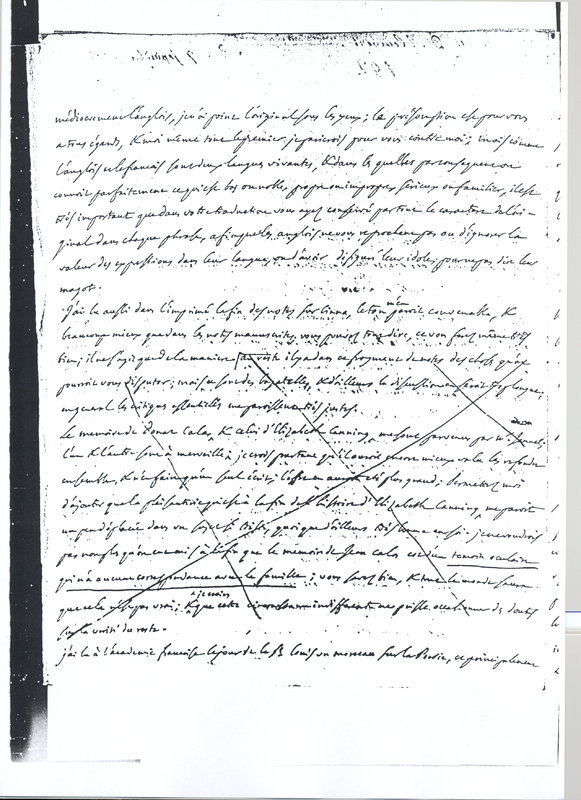 médiocrement l'anglois, je n'ai point l'original sous les yeux; la présomption est pour vous
à tous égards, & moi même tout le premier je parierois pour vous contre moi; mais comme
l'anglois & le francois sont deux langues vivantes, & dans lesquelles par conséquent on
connoit parfaitement ce qui est bas ou noble, propre ou impropre, sérieux ou familier, il est
très important que dans votre traduction vous ayez conservé partout le caractere de l'ori-
ginal dans chaque phrase, afin que les anglois ne vous reprochent pas ou d'ignorer la
valeur des expressions dans leur langue, ou d'avoir défiguré leur idole, pour ne pas dire leur
magot.
J'ai lu aussi dans l'imprimé la fin des notes sur Cinna, le ton m'en paroit convenable, &
beaucoup mieux que dans les notes manuscrites, vous pouvez tout dire, & vous savez même très
bien; il ne s'agit que de la maniere; au reste il y a dans ce fragment de notes des choses qu'on
pourroit vous disputer; mais ce sont des bagatelles, & d'ailleurs la discussion en seroit trop longue,
en général les critiques essentielles me paroissent très justes.
Le memoire de Donat Calas, & celui d'Elizabeth Canning, me sont parvenus par
l'un & l'autre sont à merveille; je crois pourtant qu'il auroit encore mieux valu les refondre
ensemble, & n'en faire qu'un seul écrit; l'effet en auroit été plus grand; Permettez moi
d'ajouter que la plaisanterie qui est à la fin de l'histoire d'Elizabeth Canning, me paroit
un peu déplacée dans un sujet si triste, quoique d'ailleurs très bonne en soi. je ne voudrois
pas non plus qu'on eut mis à la fin que le mémoire de Jean Calas est d'un temoin oculaire
qui n'a aucune correspondance avec la famille; vous savez bien, & tout le monde saura
que cela n'est pas vrai; & je crains que cette circonstance indifférente ne puisse occasionner des doutes
sur la vérité du reste.
j'ai lu à l'academie françoise le jour de la St Louis un morceau sur la Poesie, & principalement